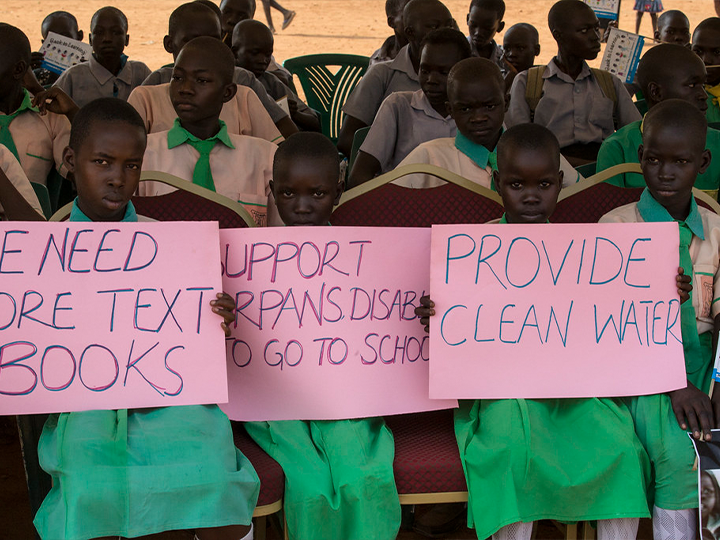 E NEED
ORE TEXT
BOOKS
UPPORT
RPANS, DISAB
TO GO TO SCHOO
PROVIDE
CLEAN WATER